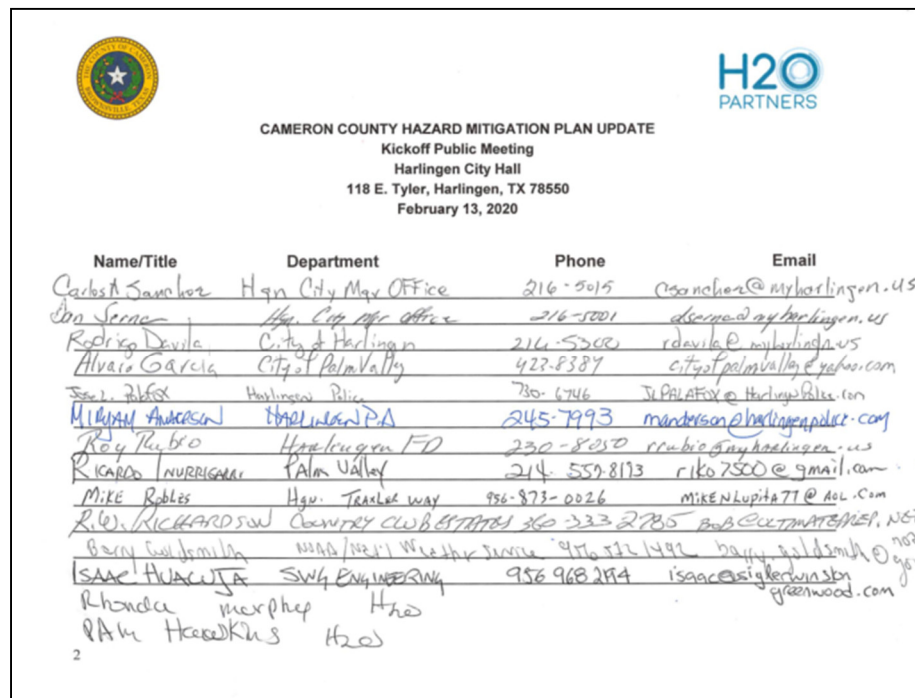 THE COUNTY OF CAMERON
BROWNSVILLE, TEXAS
H2O
PARTNERS
CAMERON COUNTY HAZARD MITIGATION PLAN UPDATE
Kickoff Public Meeting
Harlingen City Hall
118 E. Tyler, Harlingen, TX 78550
February 13, 2020
Name/Title Department Phone Email
Carlos A Sanchez Hgn City Mgr OFFice 216-5015 csanchez@myharlingen.us
Dan Serna Hgn. City Mgr Office 216-5001 dserna@myharlingen.us
Rodrigo Davila City of Harlingen rdavila@myharlingen.us
Alvaro Garcia City of Palm Valley 423-8384 cityofpalmvalley@yahoo.com
Harlingen Police JLPALAFOX@HarlingenPolice.com
MIRYAM ANDERSON HARLINGEN P.D 245-7993 manderson@harlingenpolice.com
Roy Rubio Harlingen FD 230-8050 rrubio@myharlingen.us
RICARDO PALM VALLEY riko7500@gmail.com
MIKE Robles Hgn. TRAILER WAY 956-873-0026 MIKENLupita77@AOL.Com
R.W. RICHARDSON COUNTRY CLUB ESTATES 360-333 2785 BOB@ULTIMATEPREP.NET
Barry Goldsmith NOAA/Nat'l Weather Service barry.goldsmith@noaa.gov
ISAAC HUACUJA SWG ENGINEERING 956 968 2194 isaac@siglerwinston
greenwood.com
Rhonda murphy H2O
PAM Hawkins H2O
2